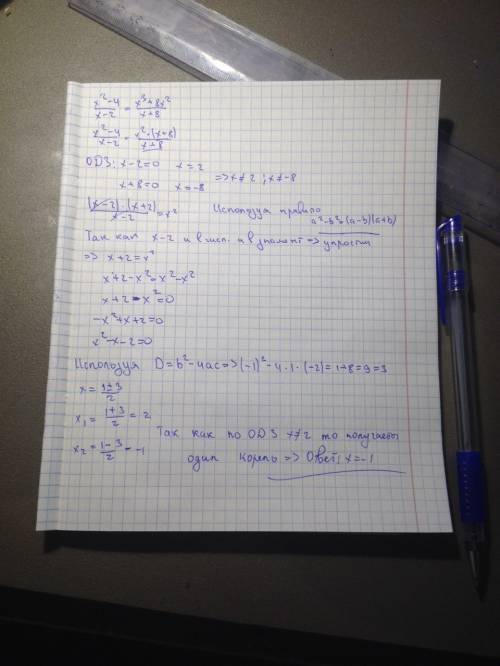 x²-4/x-2 = x³+8x²/x+8
x²-4/x-2 = x²·(x+8)/x+8
ОДЗ: x-2=0 x=2
x+8=0 x=-8 =>x≠2; x≠-8
(x-2)·(x+2)/x-2 = x² Используя правило
a²-b²=(a-b)(a+b)
Так как x-2 и в числ. и в => упростим
=> x+2=x²
x+2-x²=x²-x²
x+2-x²=0
-x²+x+2=0
x²-x-2=0
Используя D=b²-4ac=>(-1)²-4·1·(-2)=1+8=9=3
x=1±3/2
x₁=1+3/2=2
Так как по ОДЗ x≠2 то получаем
x₂=1-3/2=-1
один корень => Ответ: x=-1